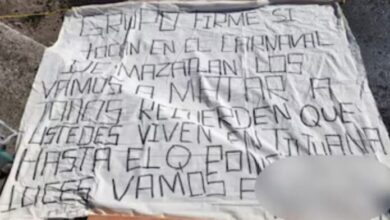 GRUPO FIRME SI
TOCAN EN EL CARNAVAL
DE MAZATLAN LOS
VAMOS A MATAR A
TODOS RECUERDEN QUE
USTEDES VIVEN EN TIJUANA
HASTA EL Q PONE
LUCES VAMOS